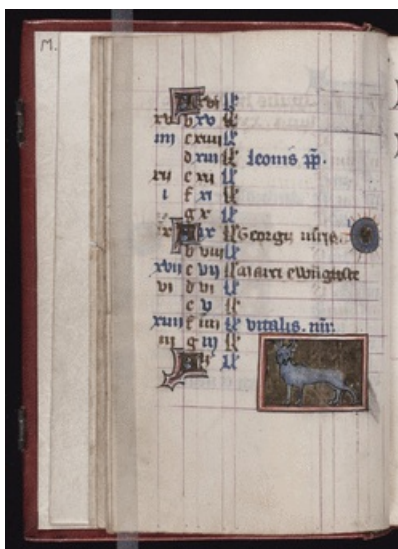 M.
A xvi kl
xv b xv kl
iiii c xiiii kl
d xiii kl leonis pp.
xii e xii kl
i f xi kl
g x kl
ix A ix kl Georgii
b viii kl
xvii c vii kl Marci ewangliste
vi d vi kl
e v kl
xiiii f iiii kl vitalis. mr.
iii g iii kl
kl